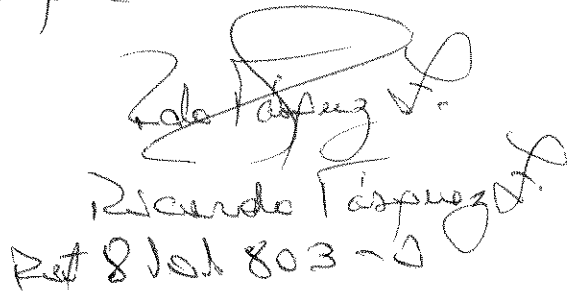 Rdo Vásquez F.
Ricardo Vásquez F.
Rut 8101803-0